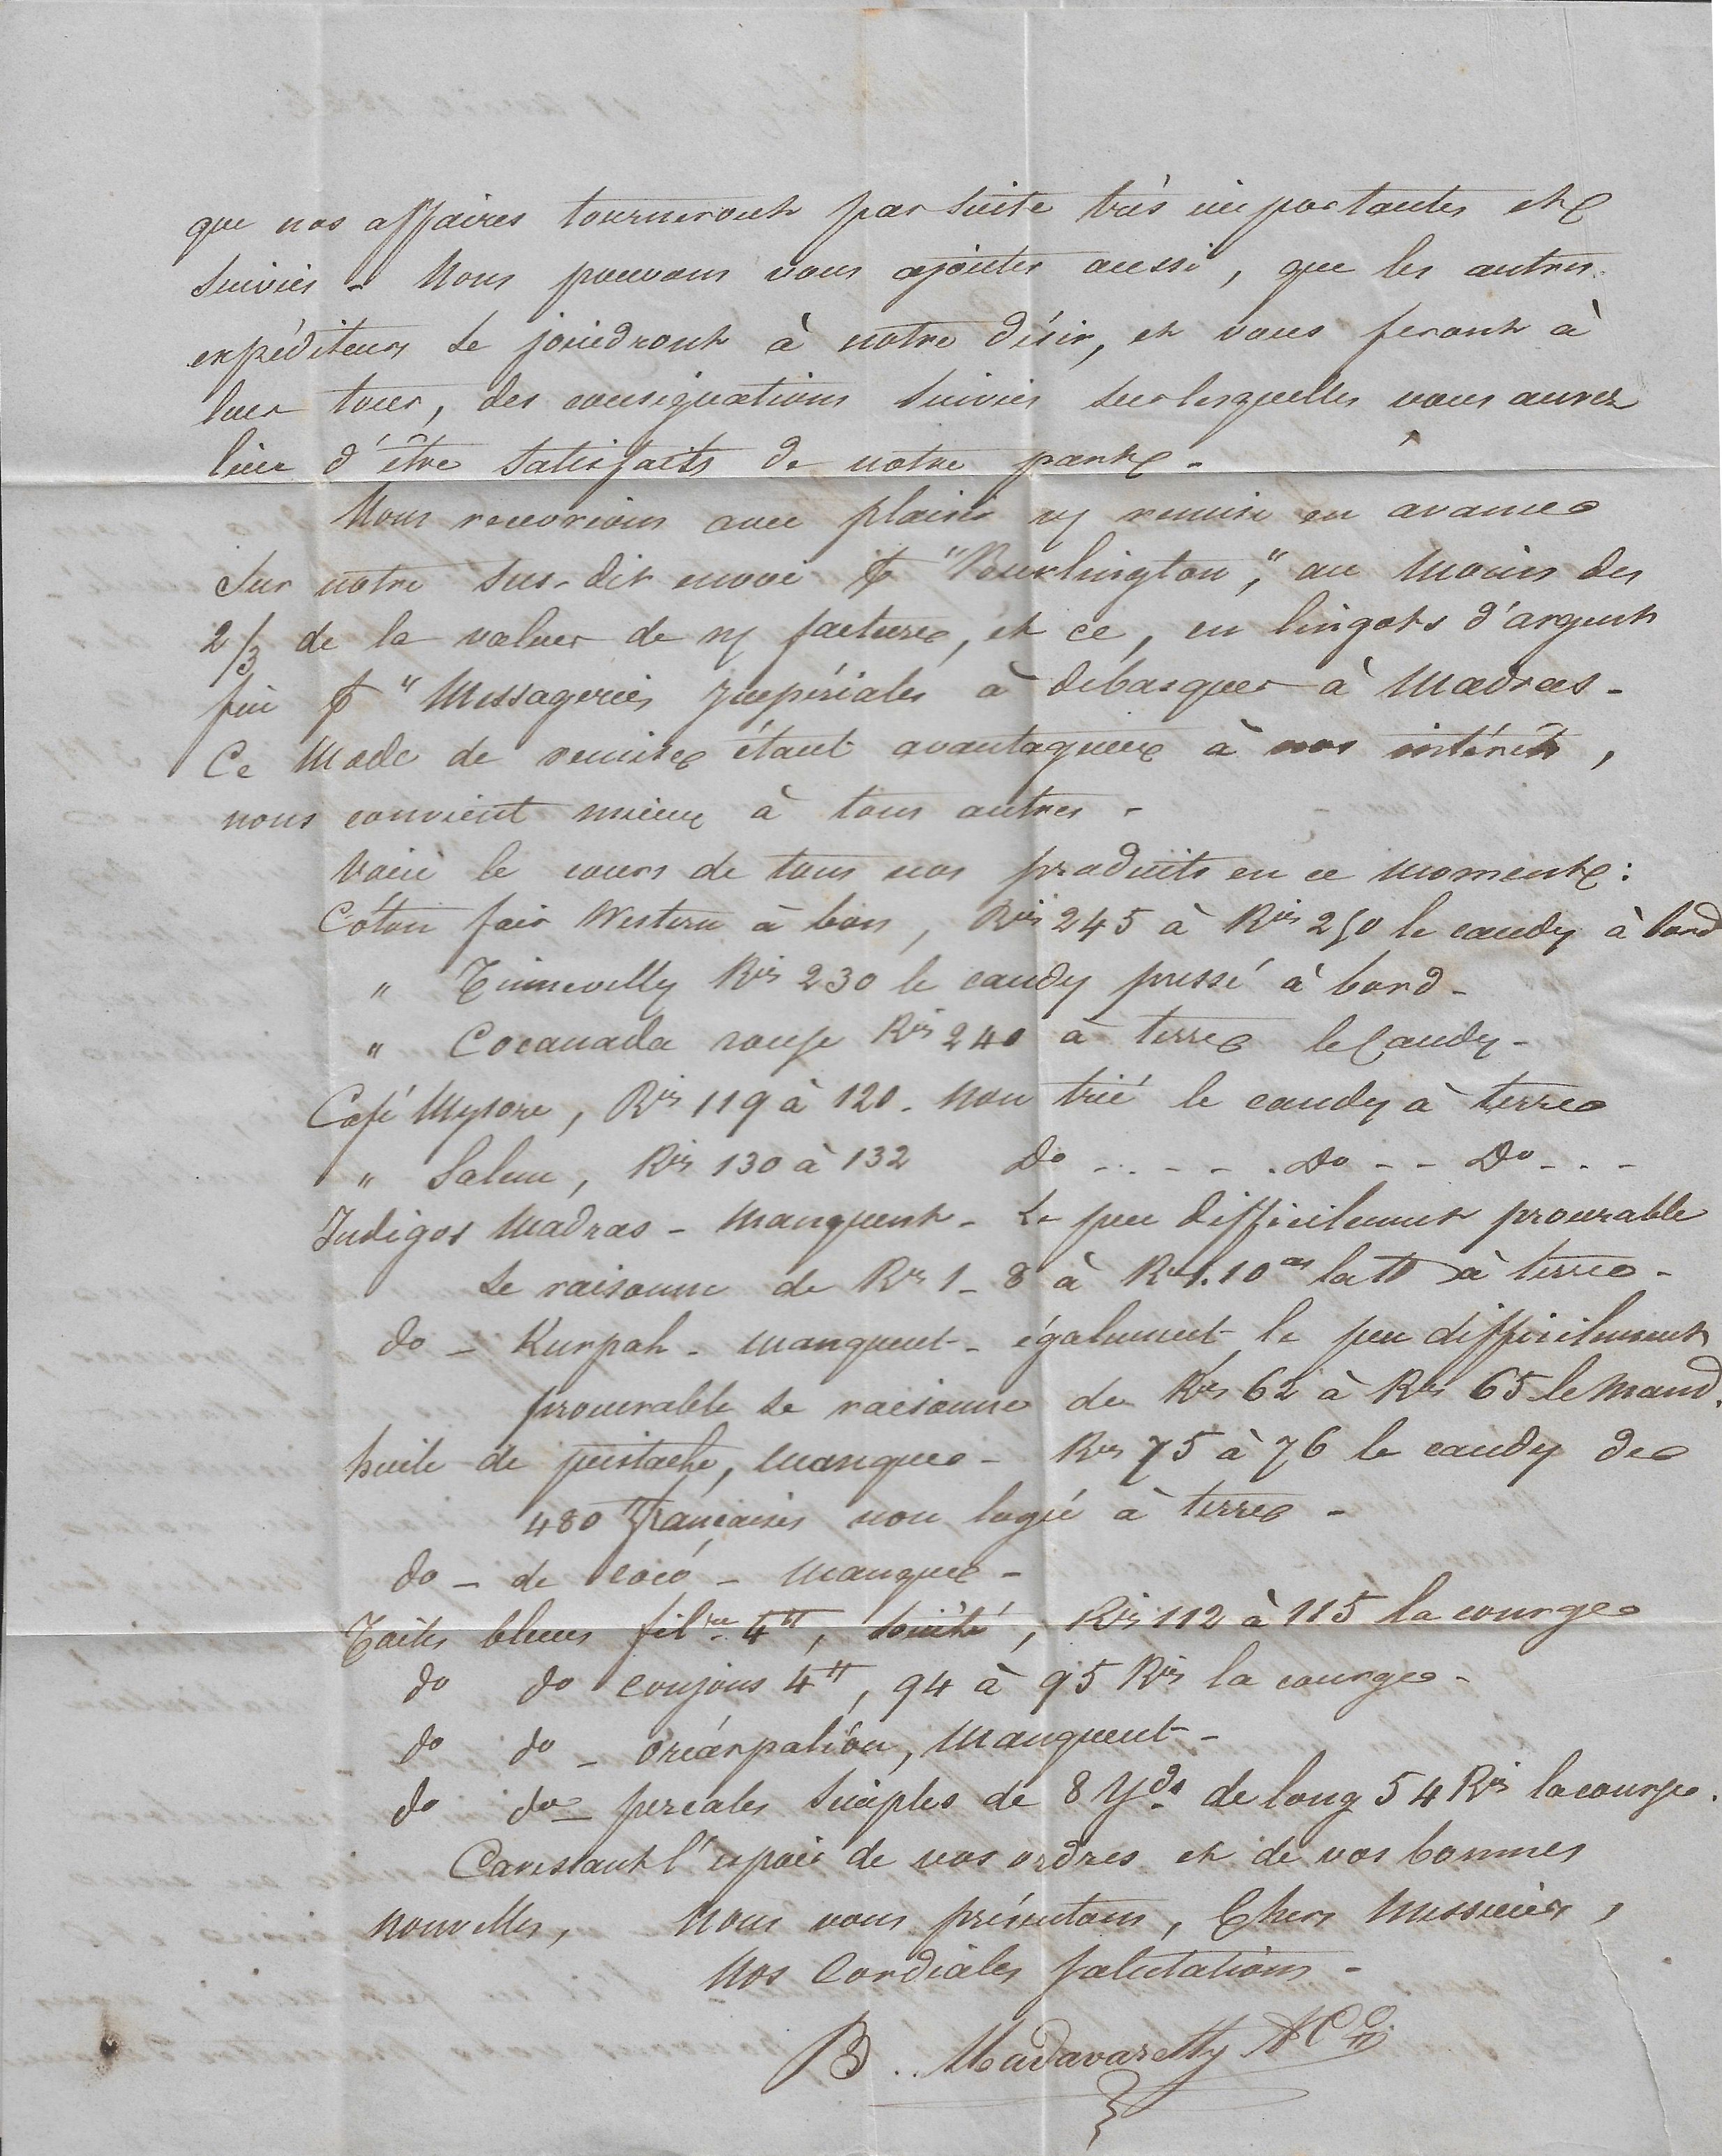 que nos affaires tourneront par suite très importantes et
suivies - Nous pouvons vous ajouter aussi, que les autres
expéditeurs se joindront à notre désir, et vous feront à
leur tour, des consignations suivies sur lesquelles vous aurez
lieu d'être satisfaits de notre part -
Nous recevrions avec plaisir une remise en avance
sur notre sus-dit envoi "Burlington," au moins des
2/3 de la valeur de facture, et ce, en lingots d'argent
fin "Messageries Impériales à débarquer à Madras -
Ce mode de remise étant avantageux à nos intérêts,
nous convient mieux à tous autres -
Voici le cours de tous nos produits en ce moment :
Coton fair Western à bon, Rs 245 à Rs 250 le candy à bord
" Tinnevelly Rs 230 le candy pressé à bord -
" Cocanada rouge Rs 240 à terre le Candy -
Café Mysore, Rs 119 à 120. Non trié le candy à terre
" Salem, Rs 130 à 132 do - - - - do - - do - - -
Indigos Madras - manquent - Le peu difficilement procurable
se raisonne de Rs 1 - 8 à Rs 1.10 as la lb à terre -
do - Kurpah - manquent - également le peu difficilement
procurable se raisonne de Rs 62 à Rs 65 le mand.
huile de pistache, manque - Rs 75 à 76 le candy de
480 françaises non logée à terre -
do - de coco - manque -
Toiles bleues filre 4tt, société, Rs 112 à 115 la courge
do do conjons 4tt, 94 à 95 Rs la courge -
do do - oréarpaliôn, manquent -
do do - percales simples de 8 Yds de long 54 Rs la courge.
Caressant l'espoir de vos ordres et de vos bonnes
nouvelles, Nous vous présentons, Chers Messieurs,
Nos Cordiales salutations -
B. Madavaretty & Cie